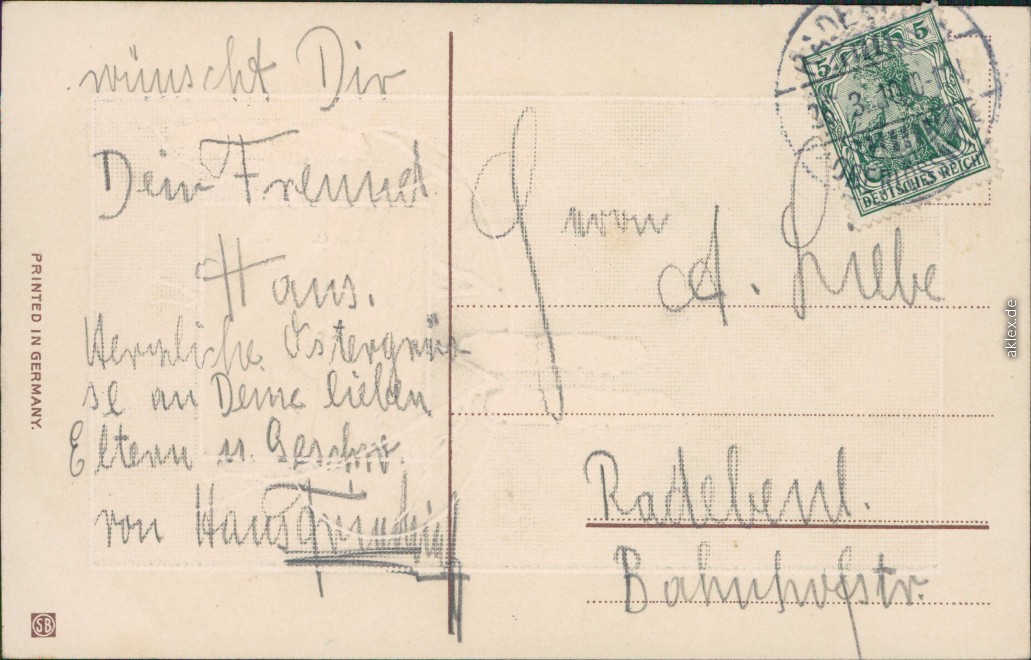 wünscht Dir
Dein Freund
Hans.
Herzliche Ostergrüs-
se an Deine lieben
Eltern u. Geschw.
von Hans
Herrn
A. Liebe
Radebeul.
Bahnhofstr.
PRINTED IN GERMANY.
SB
5 5
DEUTSCHES REICH
3. 10
aklex.de